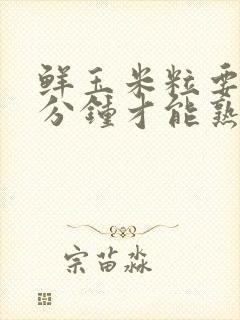 鲜玉米粒要
分鍾才能熟
宗苗淼